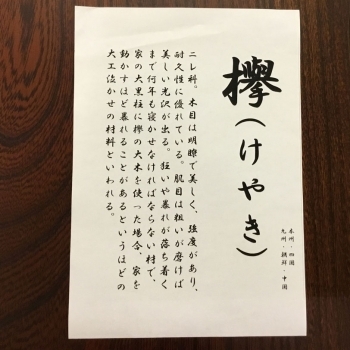 欅(けやき)
本州・四国
九州・朝鮮・中国
ニレ科。木目は明瞭で美しく、強度があり、
耐久性に優れている。肌目は粗いが磨けば
美しい光沢が出る。狂いや暴れが落ち着く
まで何年も寝かせなければならない材で、
家の大黒柱に欅の大木を使った場合、家を
動かすほど暴れることがあるというほどの
大工泣かせの材料といわれる。